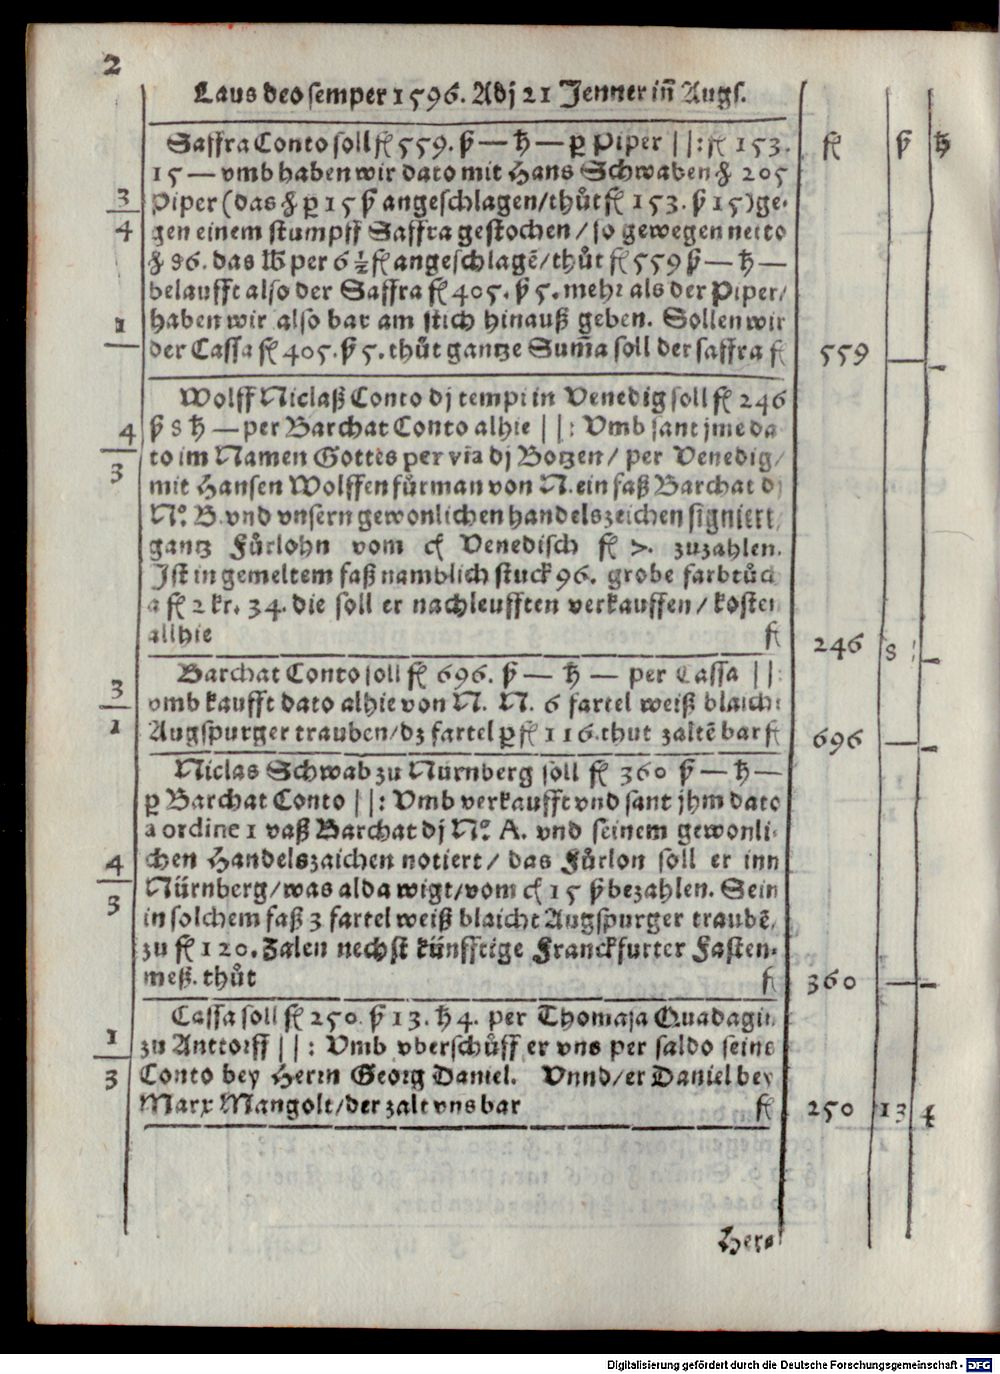 2
Laus deo semper 1596. Adj 21 Jenner in̄ Augs.
Saffra Conto soll fl 559. ß — h — ꝑ Piper ||: fl 153.
15 — vmb haben wir dato mit Hans Schwaben ℔ 205
3
Piper (das ℔ ꝑ 15 ß angeschlagen/thůt fl 153. ß 15) ge-
4
gen einem stumpff Saffra gestochen/so gewegen netto
℔ 86. das lb per 6 ½ fl angeschlagē/thůt fl 559 ß — h —
belaufft also der Saffra fl 405. ß 5. mehr als der Piper/
1
haben wir also bar am stich hinauß geben. Sollen wir
der Cassa fl 405. ß 5. thůt gantze Sum̄a soll der saffra fl 559 —  —
Wolff Niclaß Conto dj tempi in Venedig soll fl 246
4
ß 8 h — per Barchat Conto alhie ||: Vmb sant jme da
3
to im Namen Gottes per via dj Botzen/ per Venedig/
mit Hansen Wolffen fůrman von N. ein faß Barchat dj
Nº B. vnd vnsern gewonlichen handelszeichen signiert,
gantz Fůrlohn vom cł Venedisch fl 7. zuzahlen.
Ist in gemeltem faß namblich stuck 96. grobe farbtůch
a fl 2 kr. 34. die soll er nachleufften verkauffen/ kosten
allhie fl 246 8 —
3
Barchat Conto soll fl 696. ß — h — per Cassa ||:
vmb kaufft dato alhie von N. N. 6 fartel weiß blaicht
1
Augspurger trauben/dz fartel ꝑ fl 116. thut zaltē bar fl 696 — —
Niclas Schwab zu Nürnberg soll fl 360 ß — h —
ꝑ Barchat Conto ||: Vmb verkaufft vnd sant jhm dato
a ordine 1 vaß Barchat dj Nº A. vnd seinem gewonli-
4
chen Handelszaichen notiert/ das Fůrlon soll er inn
3
Nürnberg/was alda wigt/vom cł 15 ß bezahlen. Sein
in solchem faß 3 fartel weiß blaicht Augspurger traubē,
zu fl 120. Zalen nechst künfftige Franckfurter Fasten-
meß. thůt fl 360 — —
Cassa soll fl 250. ß 13. h 4. per Thomasa Quadagn
1
zu Anttorff ||: Vmb vberschůß er vns per saldo seins
3
Conto bey Herrn Georg Daniel. Vnnd/er Daniel bey
Marx Mangolt/der zalt vns bar fl 250 13 4
fl ß h
Hers
Digitalisierung gefördert durch die Deutsche Forschungsgemeinschaft - DFG